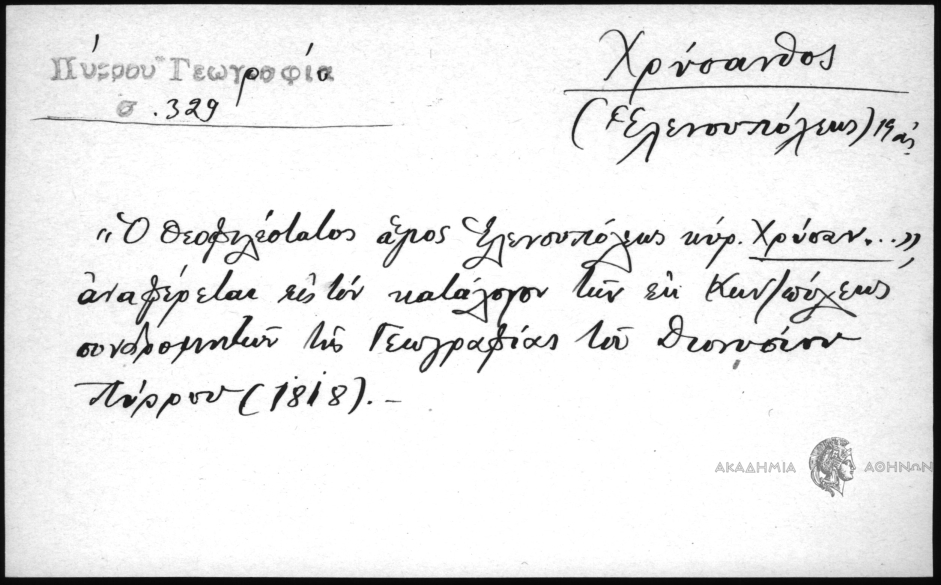 Πύρρου Γεωγραφία
σ. 329
Χρύσανθος
(Ἑλενουπόλεως) 19 αἰ.
„Ὁ θεοφιλέστατος ἅγιος Ἑλενουπόλεως κύρ. Χρύσαν...”
ἀναφέρεται εἰς τόν κατάλογον τῶν ἐκ Κων/πόλεως
συνδρομητῶν τῆς Γεωγραφίας τοῦ Διονυσίου
Πύρρου (1818). –
ΑΚΑΔΗΜΙΑ ΑΘΗΝΩΝ